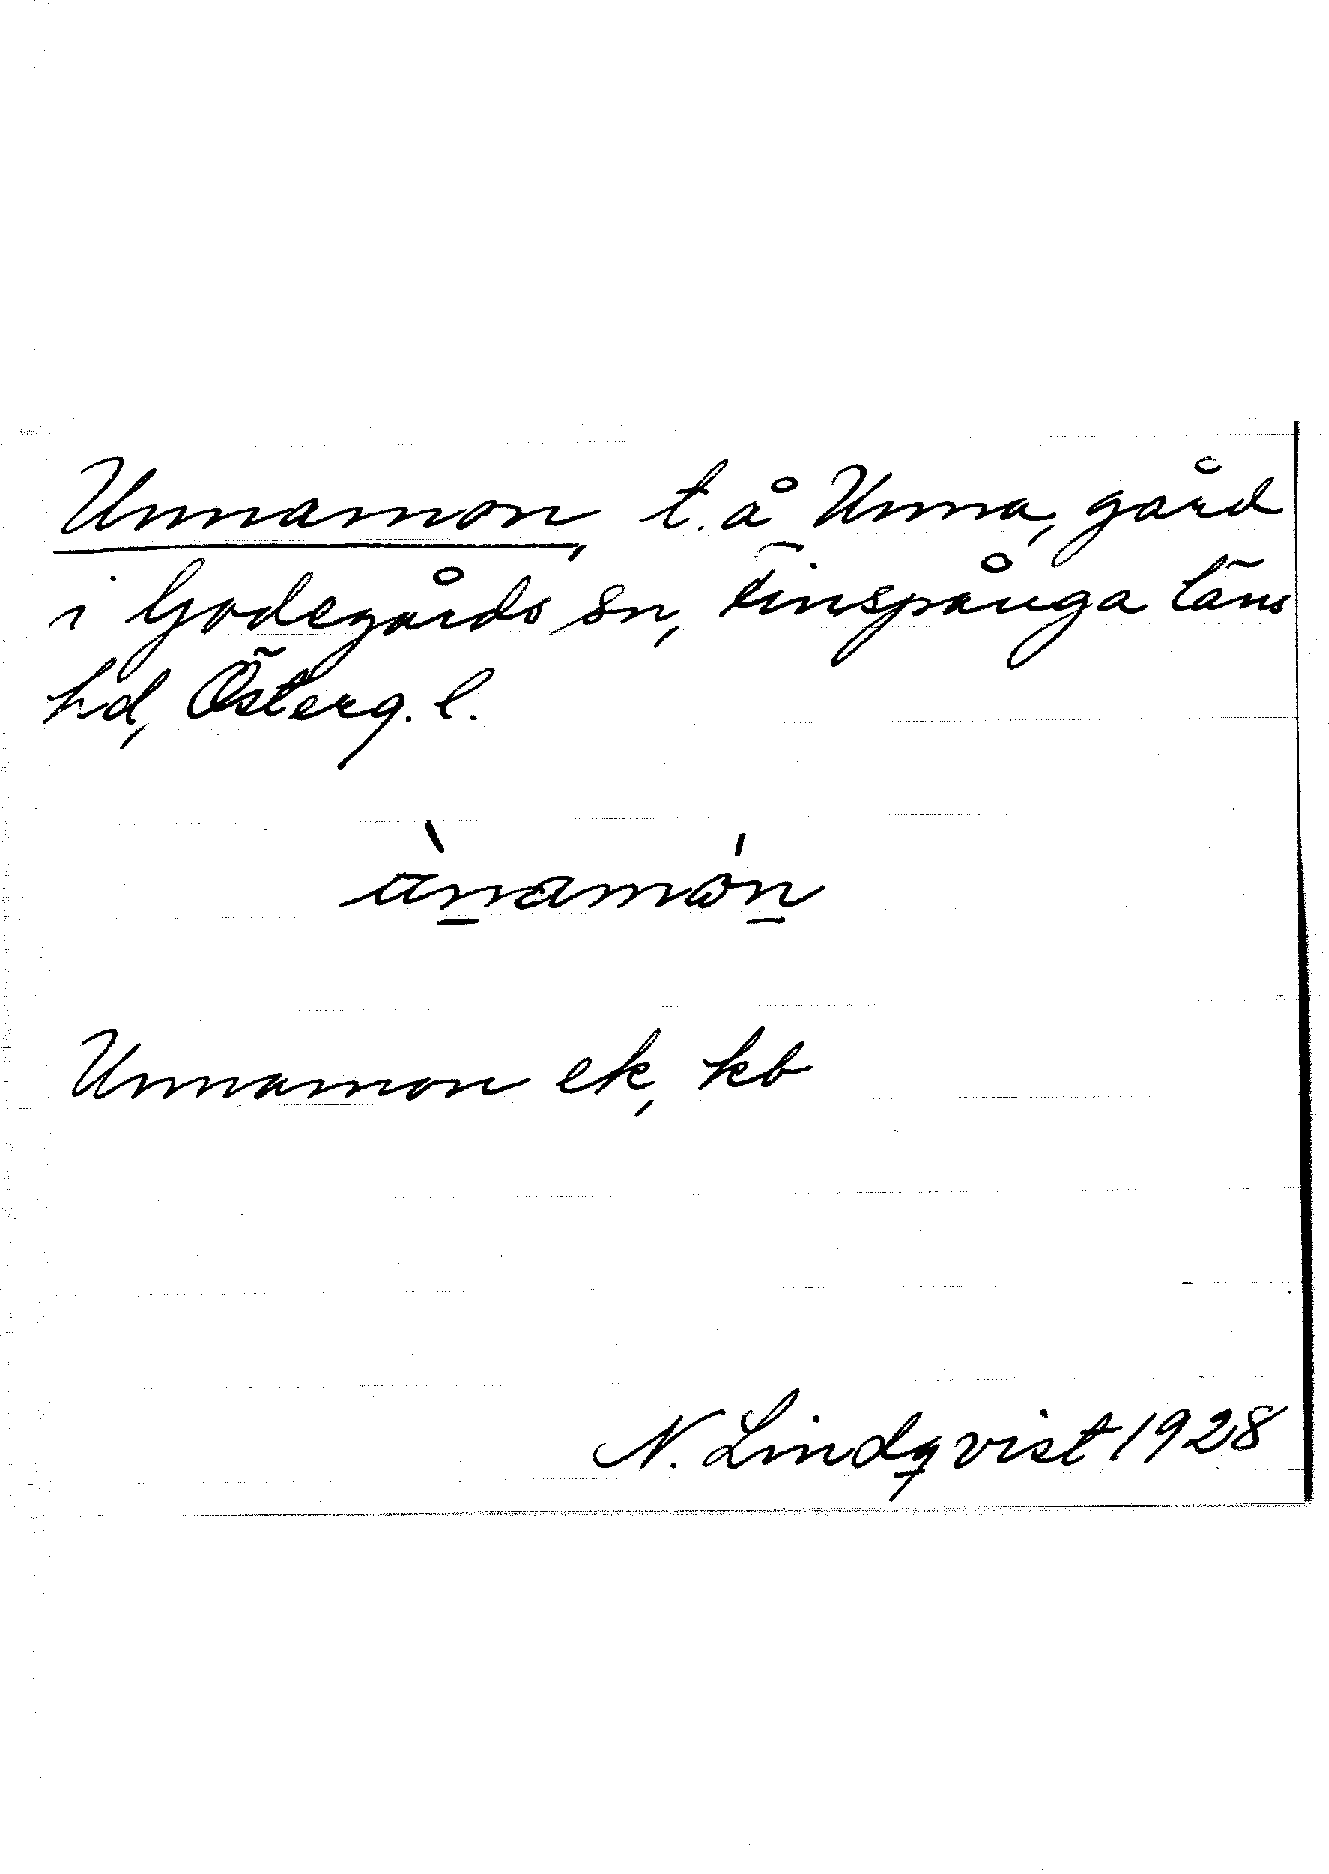 Unnamon, t. å Unna, gård
i Godegårds sn, Finspånga läns
hd, Österg. l.
ùnamón
Unnamon ek, kb
N. Lindqvist 1928